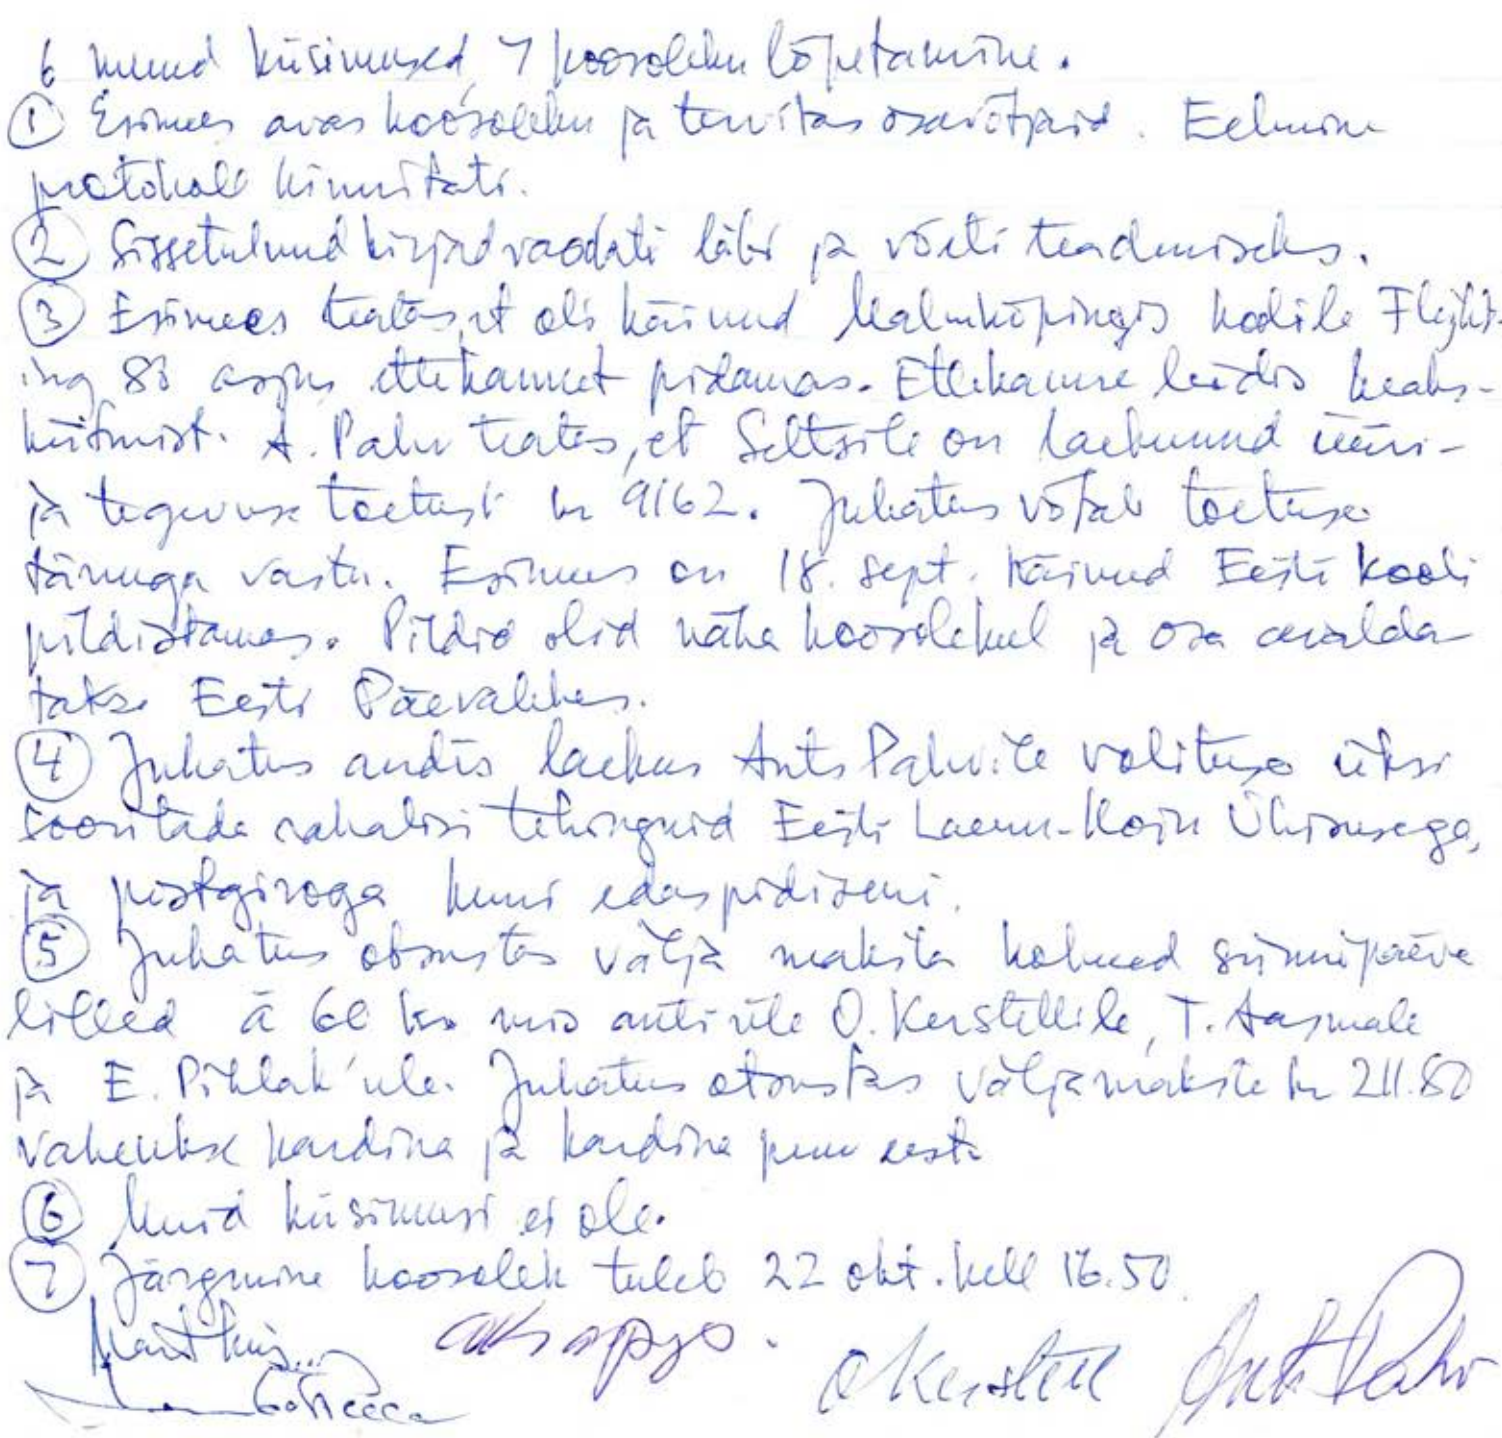 6 muud küsimused, 7 koosoleku lõpetamine.
① Esimees avas koosoleku ja tervitas osavõtjaid. Eelmine
protokoll kinnitati.
② Sissetulnud kirjad vaadati läbi ja võeti teadmiseks.
③ Esimees teatas, et oli käinud Malmköpingis kodile Flykt-
ing 83 asjus ettekannet pidamas. Ettekanne leidis heaks-
kiitmist. A. Palu teatas, et Seltsile on laekunud üüri-
ja tegevuse toetust kr 9162. Juhatus võtab toetuse
tänuga vastu. Esimees on 18. sept. käinud Eesti Kooli
pildistamas. Pildid olid näha koosolekul ja osa avalda-
takse Eesti Päevalehes.
④ Juhatus andis laekur Ants Palu'ile volituse üksi
sooritada rahalisi tehinguid Eesti Laenu-Hoiu Ühisusega,
ja postgiroga kuni edaspidiseni.
⑤ Juhatus otsustas välja maksta kolmed sünnipäeva
lilled à 60 kr mis anti üle O. Kerstellile, T. Aasmale
ja E. Pihlak'ule. Juhatus otsustas välja maksta kr 211.80
vaheukse kardina ja kardina puu eest.
⑥ Muid küsimusi ei ole.
⑦ Järgmine koosolek tuleb 22 okt. kell 16.50.
O Kerstell Ants Palu